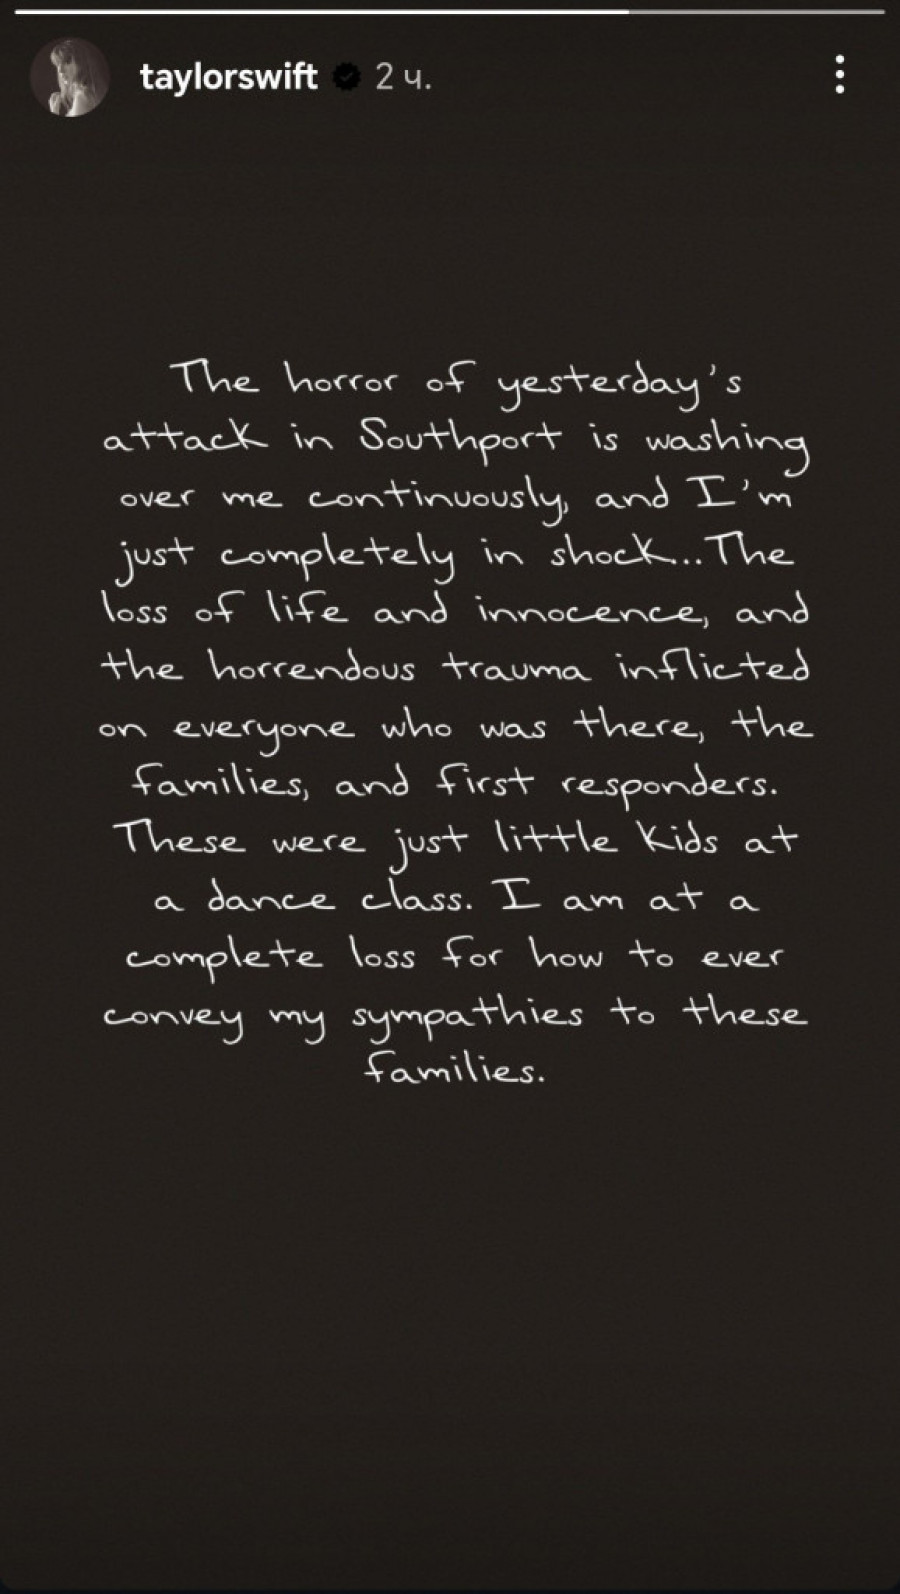 taylorswift 2 ч.
The horror of yesterday's
attack in Southport is washing
over me continuously, and I'm
just completely in shock...The
loss of life and innocence, and
the horrendous trauma inflicted
on everyone who was there, the
families, and first responders.
These were just little kids at
a dance class. I am at a
complete loss for how to ever
convey my sympathies to these
families.